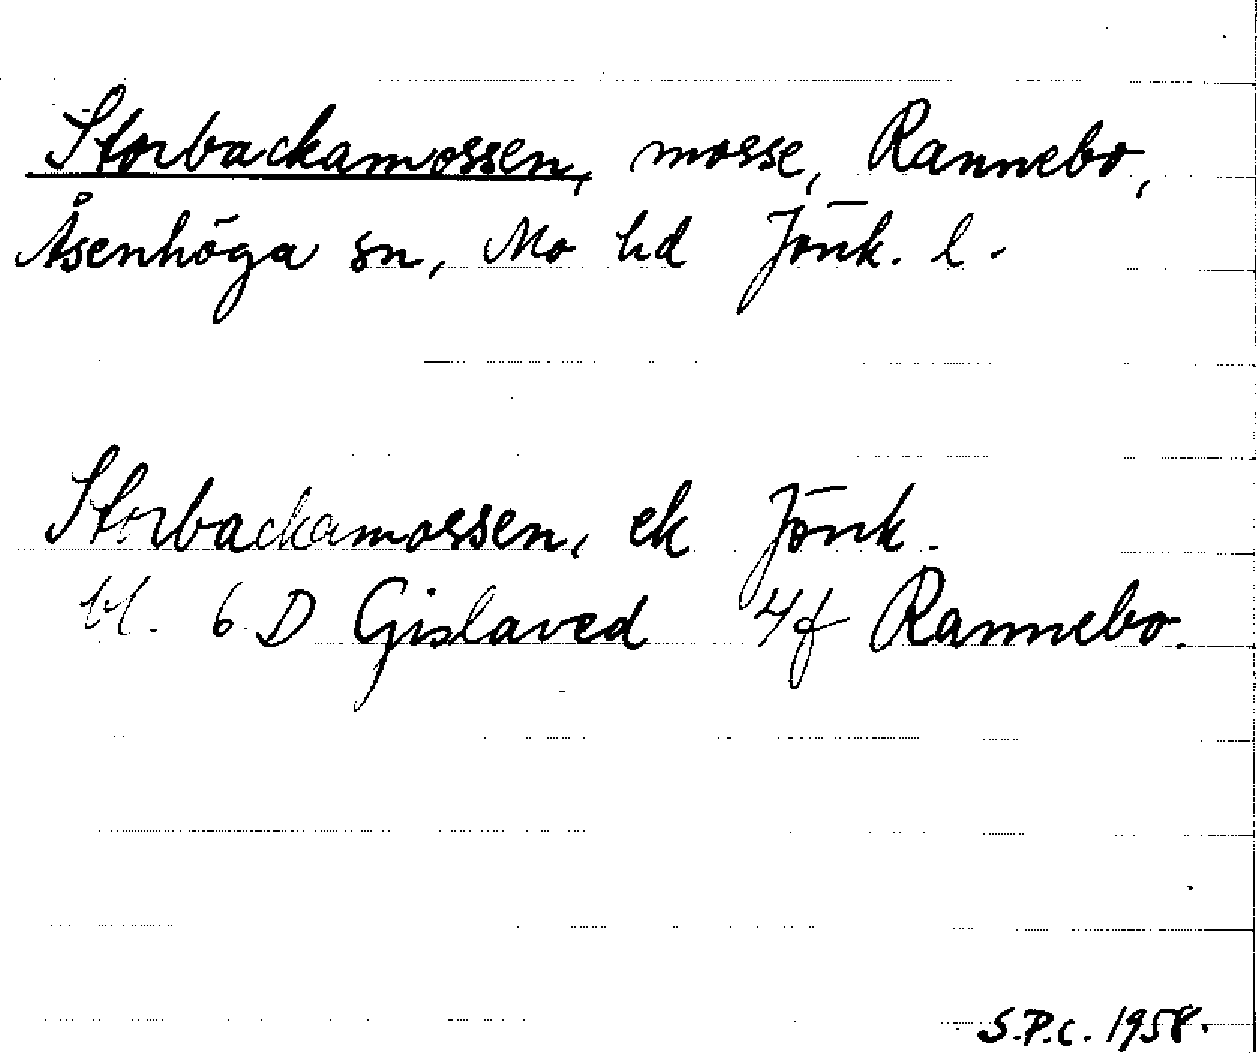 Storbackamossen, mosse, Rannebo,
Åsenhöga sn, Mo hd Jönk. l.
Storbackamossen, ek Jönk.
bl. 6 D Gislaved 4f Rannebo.
S.P.C. 1958.